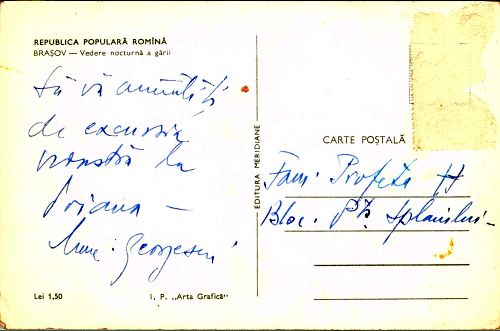 REPUBLICA POPULARĂ ROMÎNĂ
BRAȘOV — Vedere nocturnă a gării
Să vă amintiți
de excursia
noastră la
Poiana —
Georgescu
EDITURA MERIDIANE
CARTE POȘTALĂ
Fam. Profeta H
Bloc. P7
Lei 1,50
I. P. „Arta Grafică"